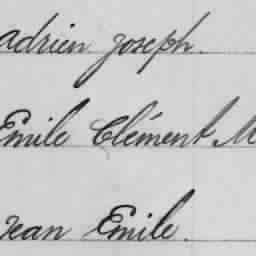 Adrien Joseph.
Emile Clément M
Jean Emile.